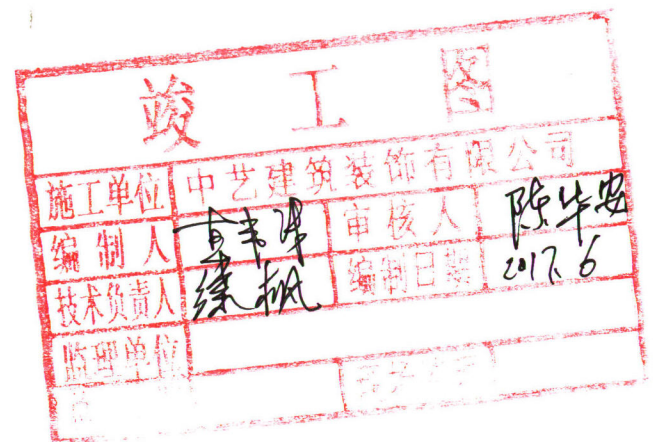 竣工图
施工单位 中艺建筑装饰有限公司
编制人 审核人 陈华安
技术负责人 编制日期 2017.6
监理单位